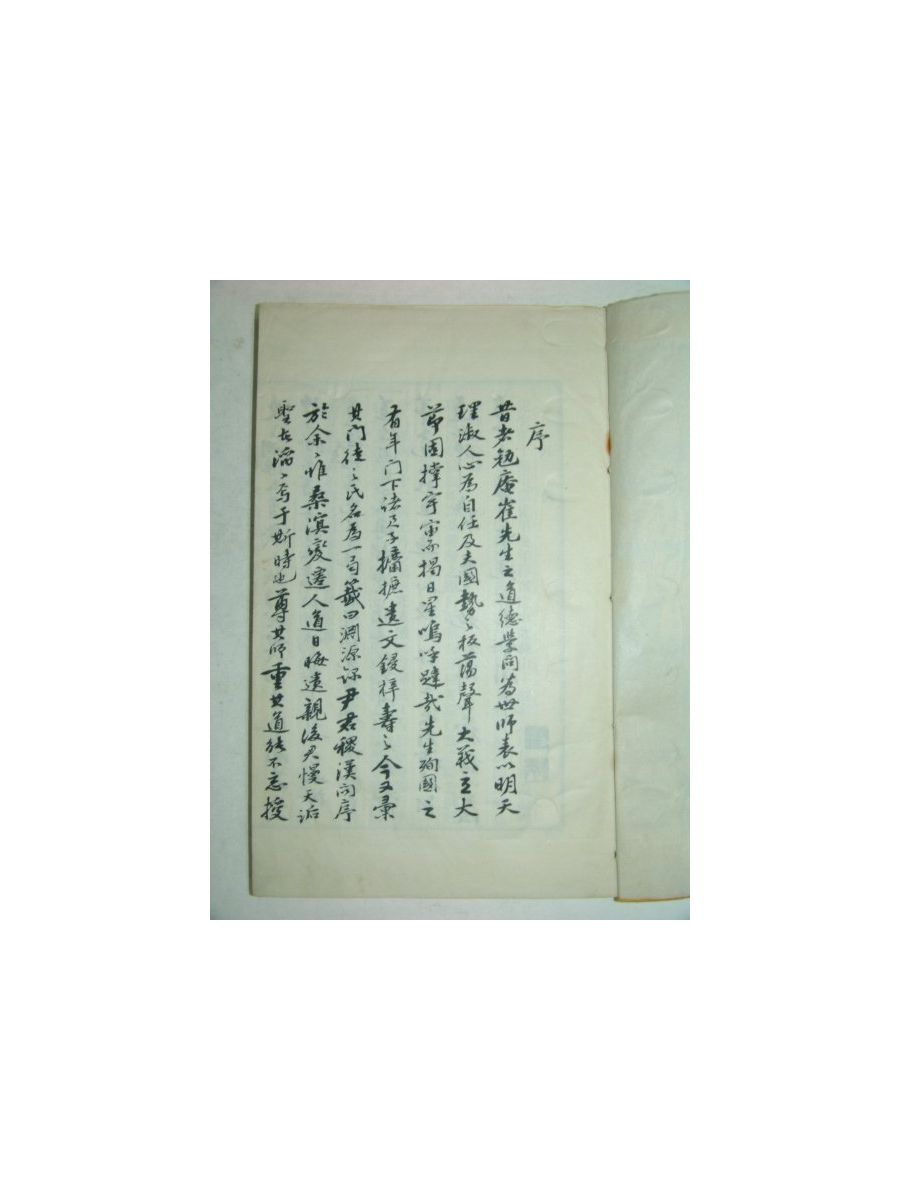 序
昔者勉庵崔先生之道德學问為世师表以明天
理淑人心為自任及夫國勢之板蕩聲大義立大
節固撑宇宙而揭日星嗚呼韙哉先生殉國之
有年门下诸君子摭遺文鋟梓壽之今又彙
其门徒之氏名為一函籤曰淵源錄尹君稷漢问序
於余々惟桑溟變遷人道日晦遺親後君慢天诟
聖者滔々焉于斯時也尊其师重其道能不忘授